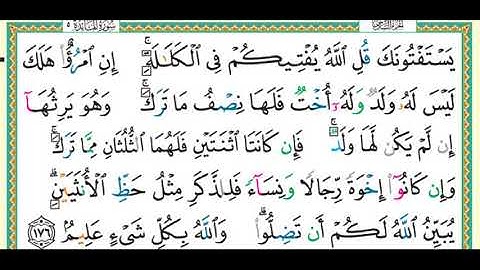 سُورَةُ المَائِدَة ٥
يَسْتَفْتُونَكَ قُلِ اللَّهُ يُفْتِيكُمْ فِى الْكَلَٰلَةِ ۚ إِنِ امْرُؤٌا۟ هَلَكَ
لَيْسَ لَهُۥ وَلَدٌ وَلَهُۥٓ أُخْتٌ فَلَهَا نِصْفُ مَا تَرَكَ ۚ وَهُوَ يَرِثُهَآ
إِن لَّمْ يَكُن لَّهَا وَلَدٌ ۚ فَإِن كَانَتَا اثْنَتَيْنِ فَلَهُمَا الثُّلُثَانِ مِمَّا تَرَكَ ۚ
وَإِن كَانُوٓا۟ إِخْوَةً رِّجَالًا وَنِسَآءً فَلِلذَّكَرِ مِثْلُ حَظِّ الْأُنثَيَيْنِ ۗ
يُبَيِّنُ اللَّهُ لَكُمْ أَن تَضِلُّوا۟ ۗ وَاللَّهُ بِكُلِّ شَىْءٍ عَلِيمٌۢ ١٧٦